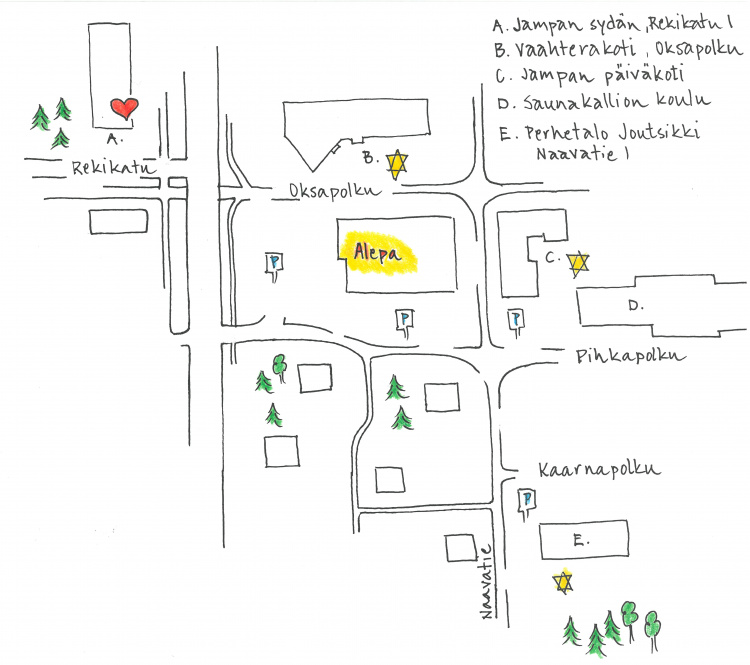 A. Jampan sydän, Rekikatu 1
B. Vaahterakoti, Oksapolku
C. Jampan päiväkoti
D. Saunakallion koulu
E. Perhetalo Joutsikki
Naavatie 1
A.
Rekikatu
B.
Oksapolku
Alepa
P
C.
D.
P
P
Pihkapolku
Kaarnapolku
P
E.
Naavatie